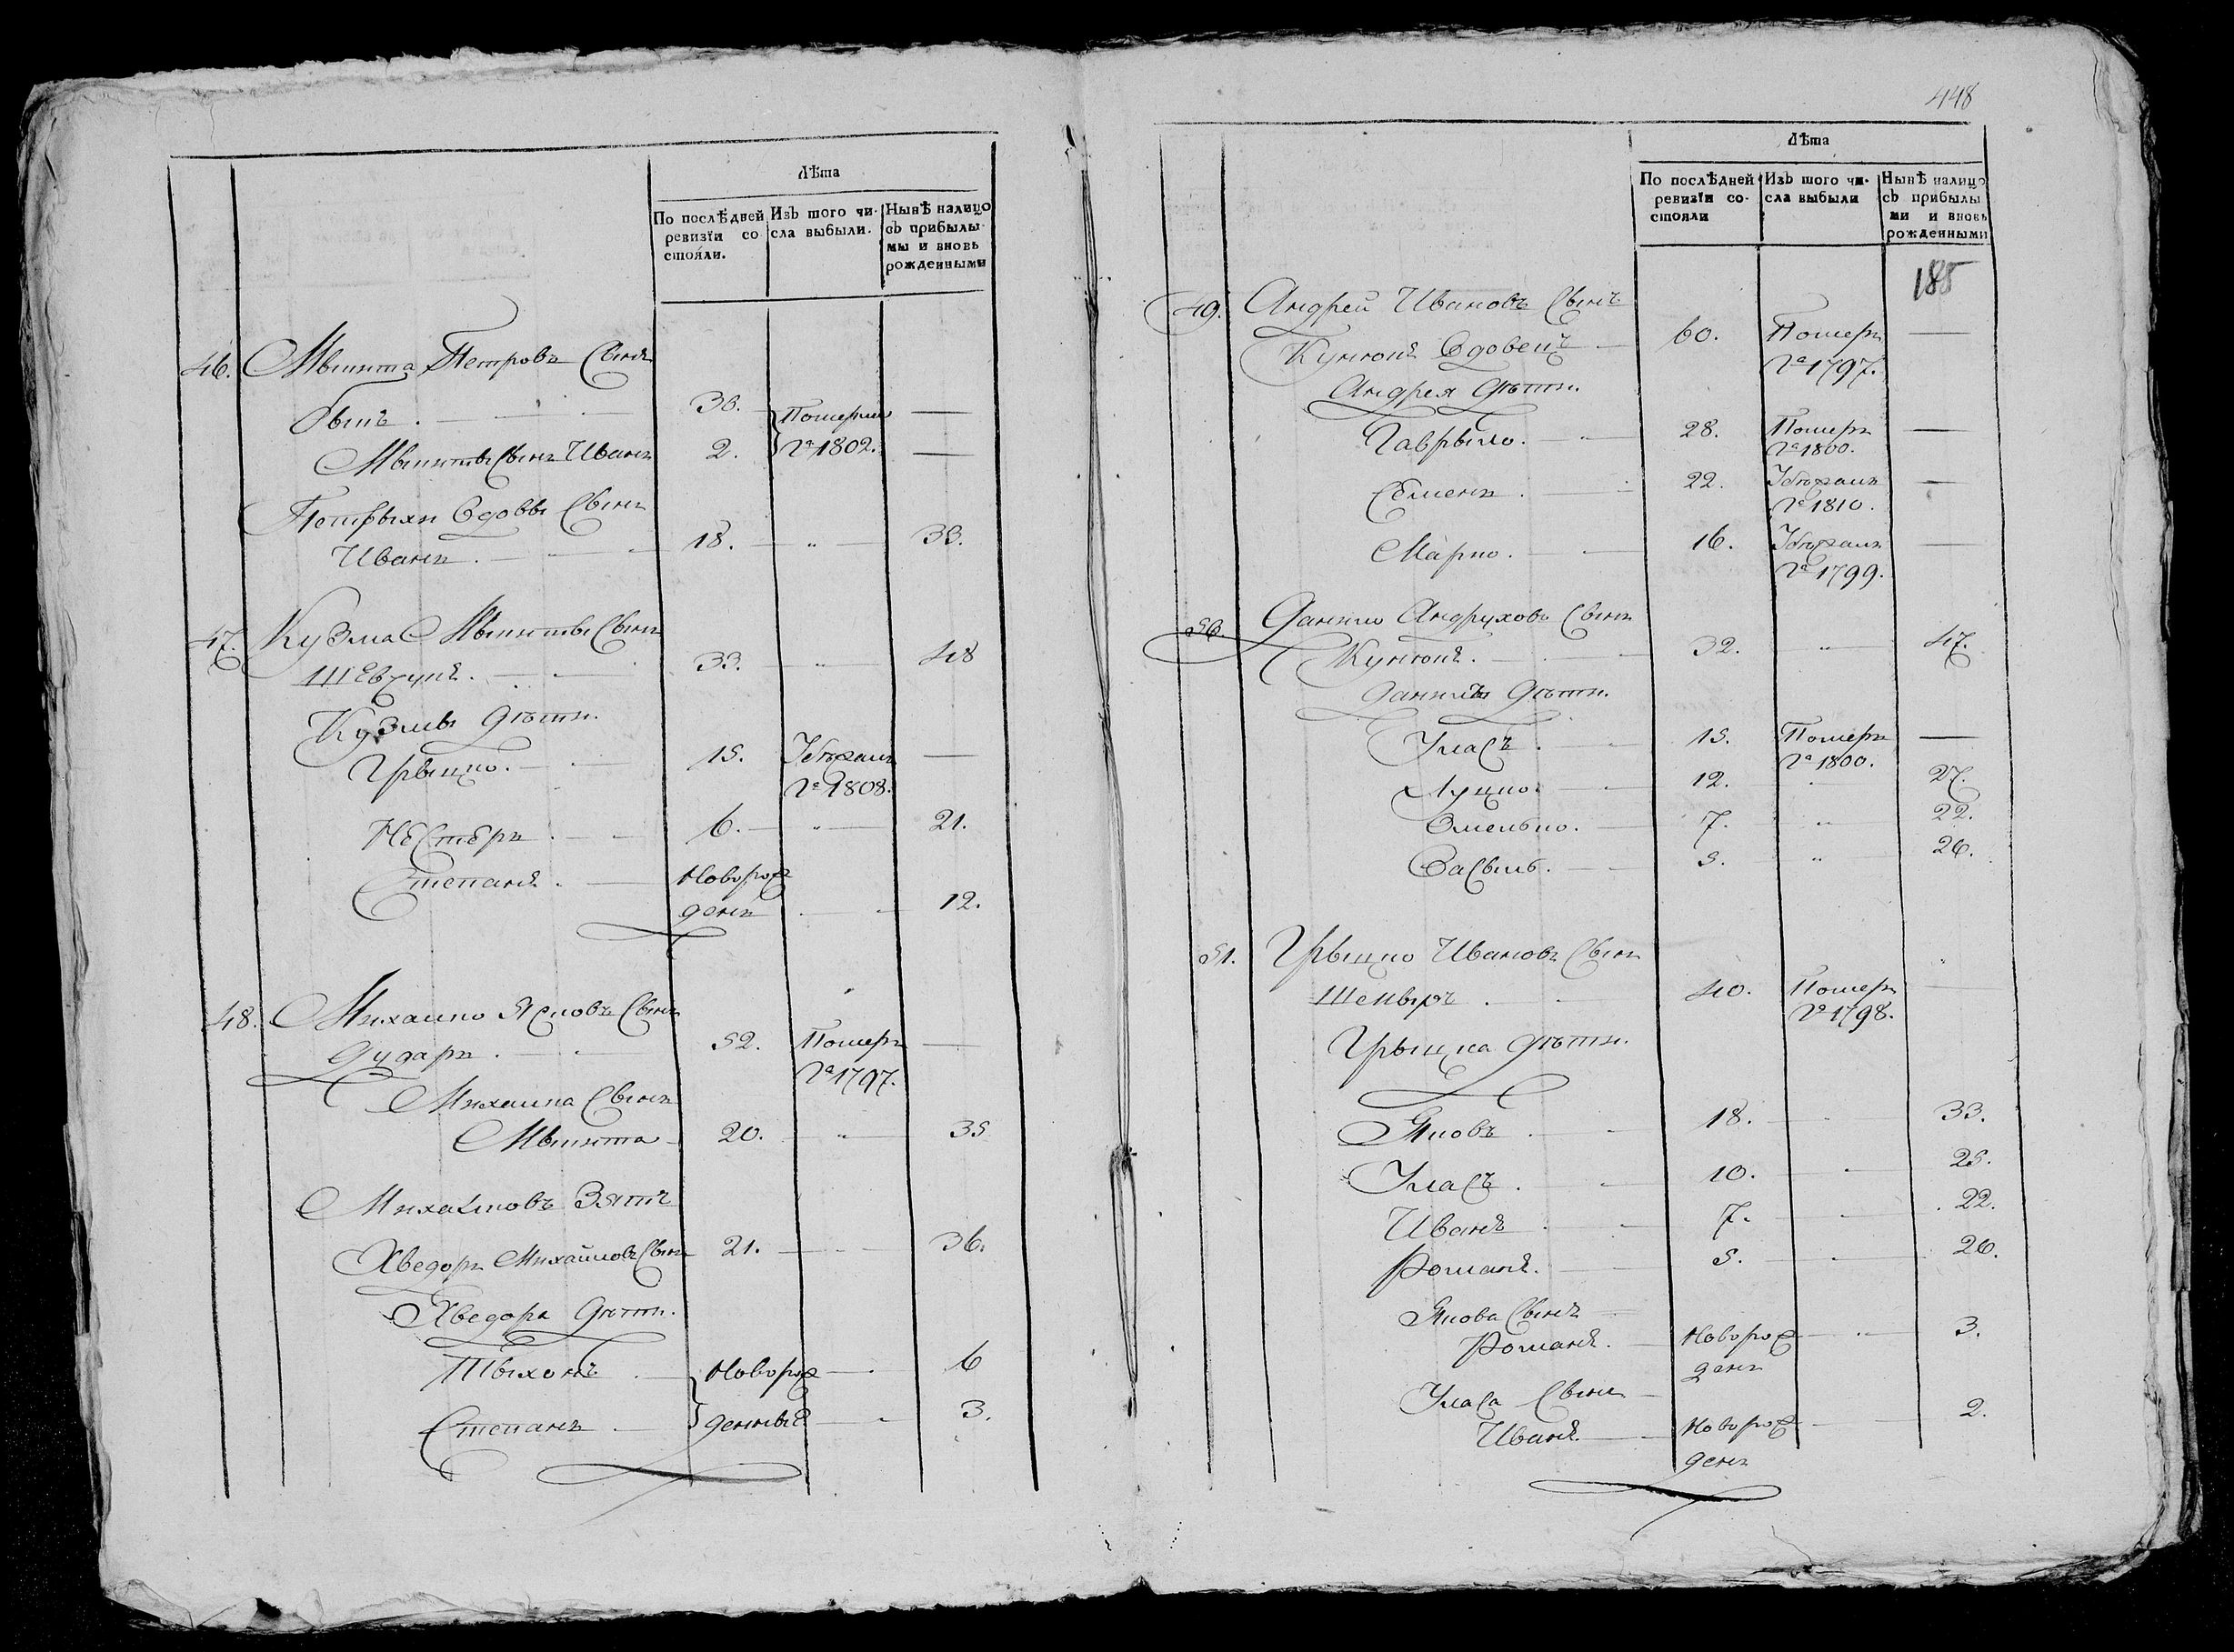 Лѣта
По послѣдней ревизїи состояли.
Изъ того числа выбыли.
Нынѣ налицо съ прибылымы и вновь рожденными
46. Мыкыта Петровъ Сынъ
30. Померли —
Мыкиты Сынъ Иванъ 2. № 1802. —
Вдовы Сынъ
Иванъ. 18. — „ — 33.
47. Кузма Мыкиты Сынъ
Шевчукъ. 33. — „ — 48
Кузмы дѣти.
Грыцко. 15. Збѣжалъ —
№ 1808.
Нестеръ 6. — „ — 21.
Степанъ. Новорож
денъ 12.
48. Михайло Яковъ Сынъ
Дударъ. 52. Померъ —
№ 1797.
Михайла Сынъ
Мыкита 20. — „ — 35
Михайловъ Зять
Хведоръ Михайловъ Сынъ 21. 36.
Хведора дѣти.
Тыхонъ Новорож 6
Степанъ денные 3.
448
Лѣта
По послѣдней ревизїи состояли
Изъ того числа выбыли
Нынѣ налицо съ прибылыми и вновь рожденными
185
49. Андрей Ивановъ Сынъ
Вдовецъ 60. Померъ —
№ 1797.
Андрея дѣти.
Гаврыло. 28. Померъ —
№ 1800.
Семенъ 22. Збѣжалъ —
№ 1810.
Марко. 16. Збѣжалъ —
№ 1799.
50. Данило Андруховъ Сынъ
32. „ 47.
Данилы дѣти.
Уласъ 15. Померъ —
№ 1800.
Луцко. 12. 27.
Омелько. 7. „ 22.
Васыль. 5. „ 20.
51. Грыцко Ивановъ Сынъ
40. Померъ —
№ 1798.
Грыцка дѣти.
Яковъ 18. 33.
Уласъ 10. 25.
Иванъ 7. 22.
Романъ. 5. 20.
Якова Сынъ
Романъ. Новорож 3.
денъ
Уласа Сынъ
Иванъ. Новорож 2.
денъ